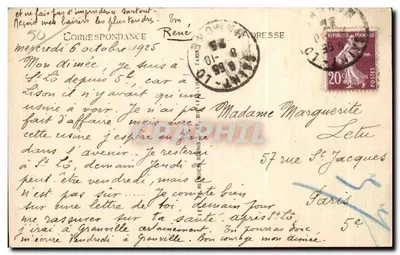 et ne fais pas d'imprudence surtout.
Reçois mes baisers les plus tendres. Ton
René
CORRESPONDANCE
ADRESSE
mercredi 6 octobre 1925
Mon aimée, je suis à
St Lô depuis 5h, car à
Lison il n'y avait qu'une
usine à voir. Je n'ai pas
fait d'affaire mais avec
cette usine j'espère en faire
dans l'avenir. Je resterai
à St Lô, demain Jeudi et
peut être, vendredi, mais ce
n'est pas sûr. Je compte bien
sur une lettre de toi, demain pour
me rassurer sur ta santé. après St Lô
j'irai à Granville certainement. Tu pourras donc
m'écrire Vendredi à Granville. Bon courage mon aimée.
Madame Marguerite
Letu
57 rue St Jacques
Paris
5e
SAINT-LO
20c
POSTES